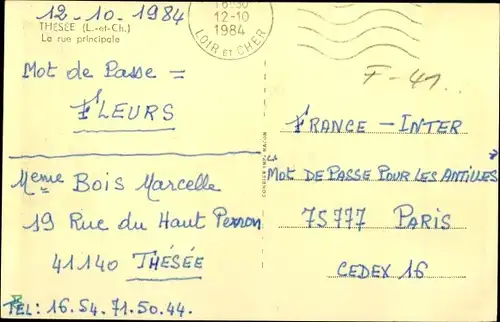 12-10-1984
THESEE (L.-et-Ch.)
La rue principale
16H30
12-10
1984
LOIR ET CHER
F-41..
Mot de Passe =
FLEURS
Mème Bois Marcelle
19 Rue du Haut Perron
41140 THÉSÉE
TEL: 16.54.71.50.44.
FRANCE-INTER
MOT DE PASSE POUR LES ANTILLES
75777 PARIS
CEDEX 16